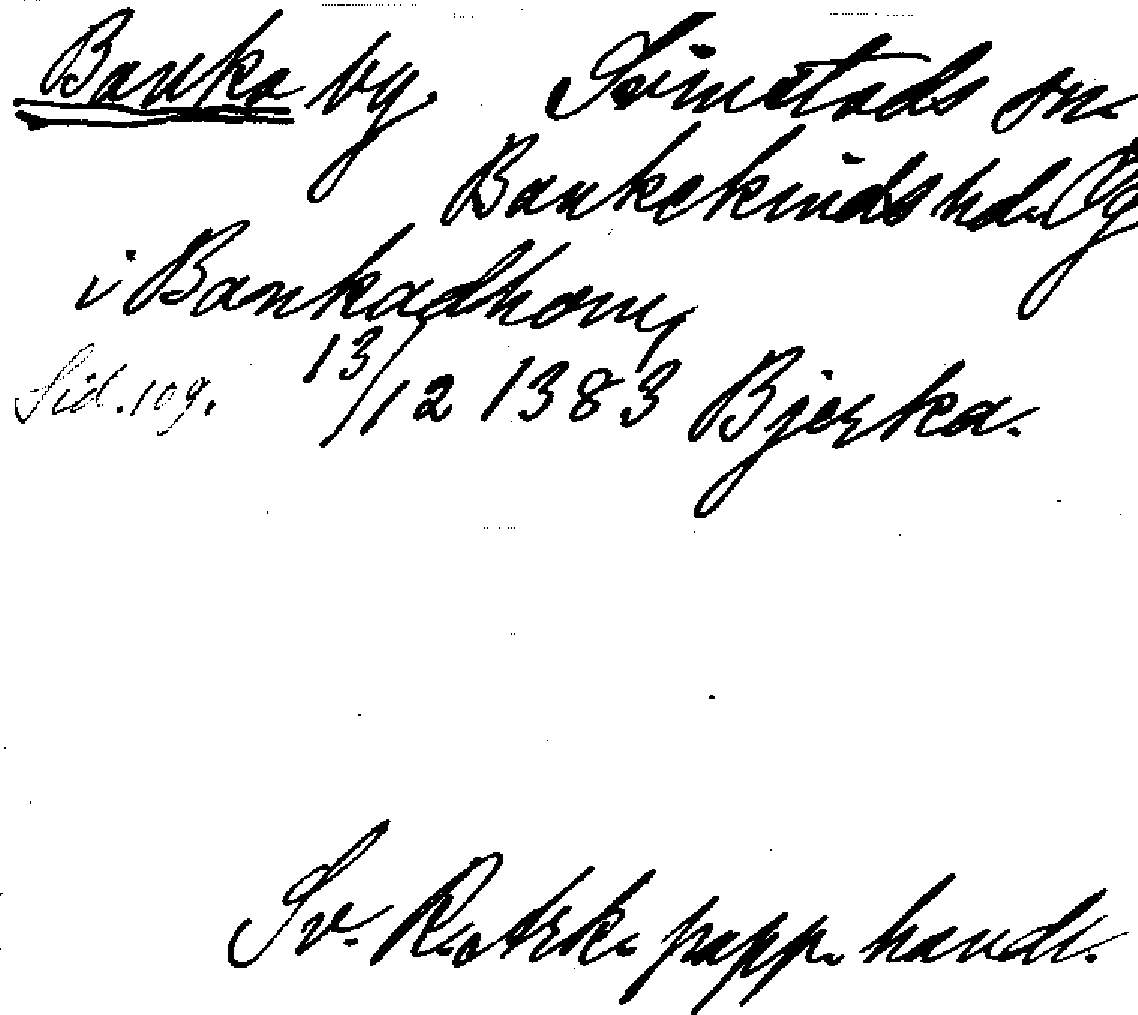 Banka by. Svinstads sn.
Bankekinds hd. Ög
i Bankadhom
Sid. 109. 13/12 1383 Bjerka.
Sv. R. Ark. papp. handl.